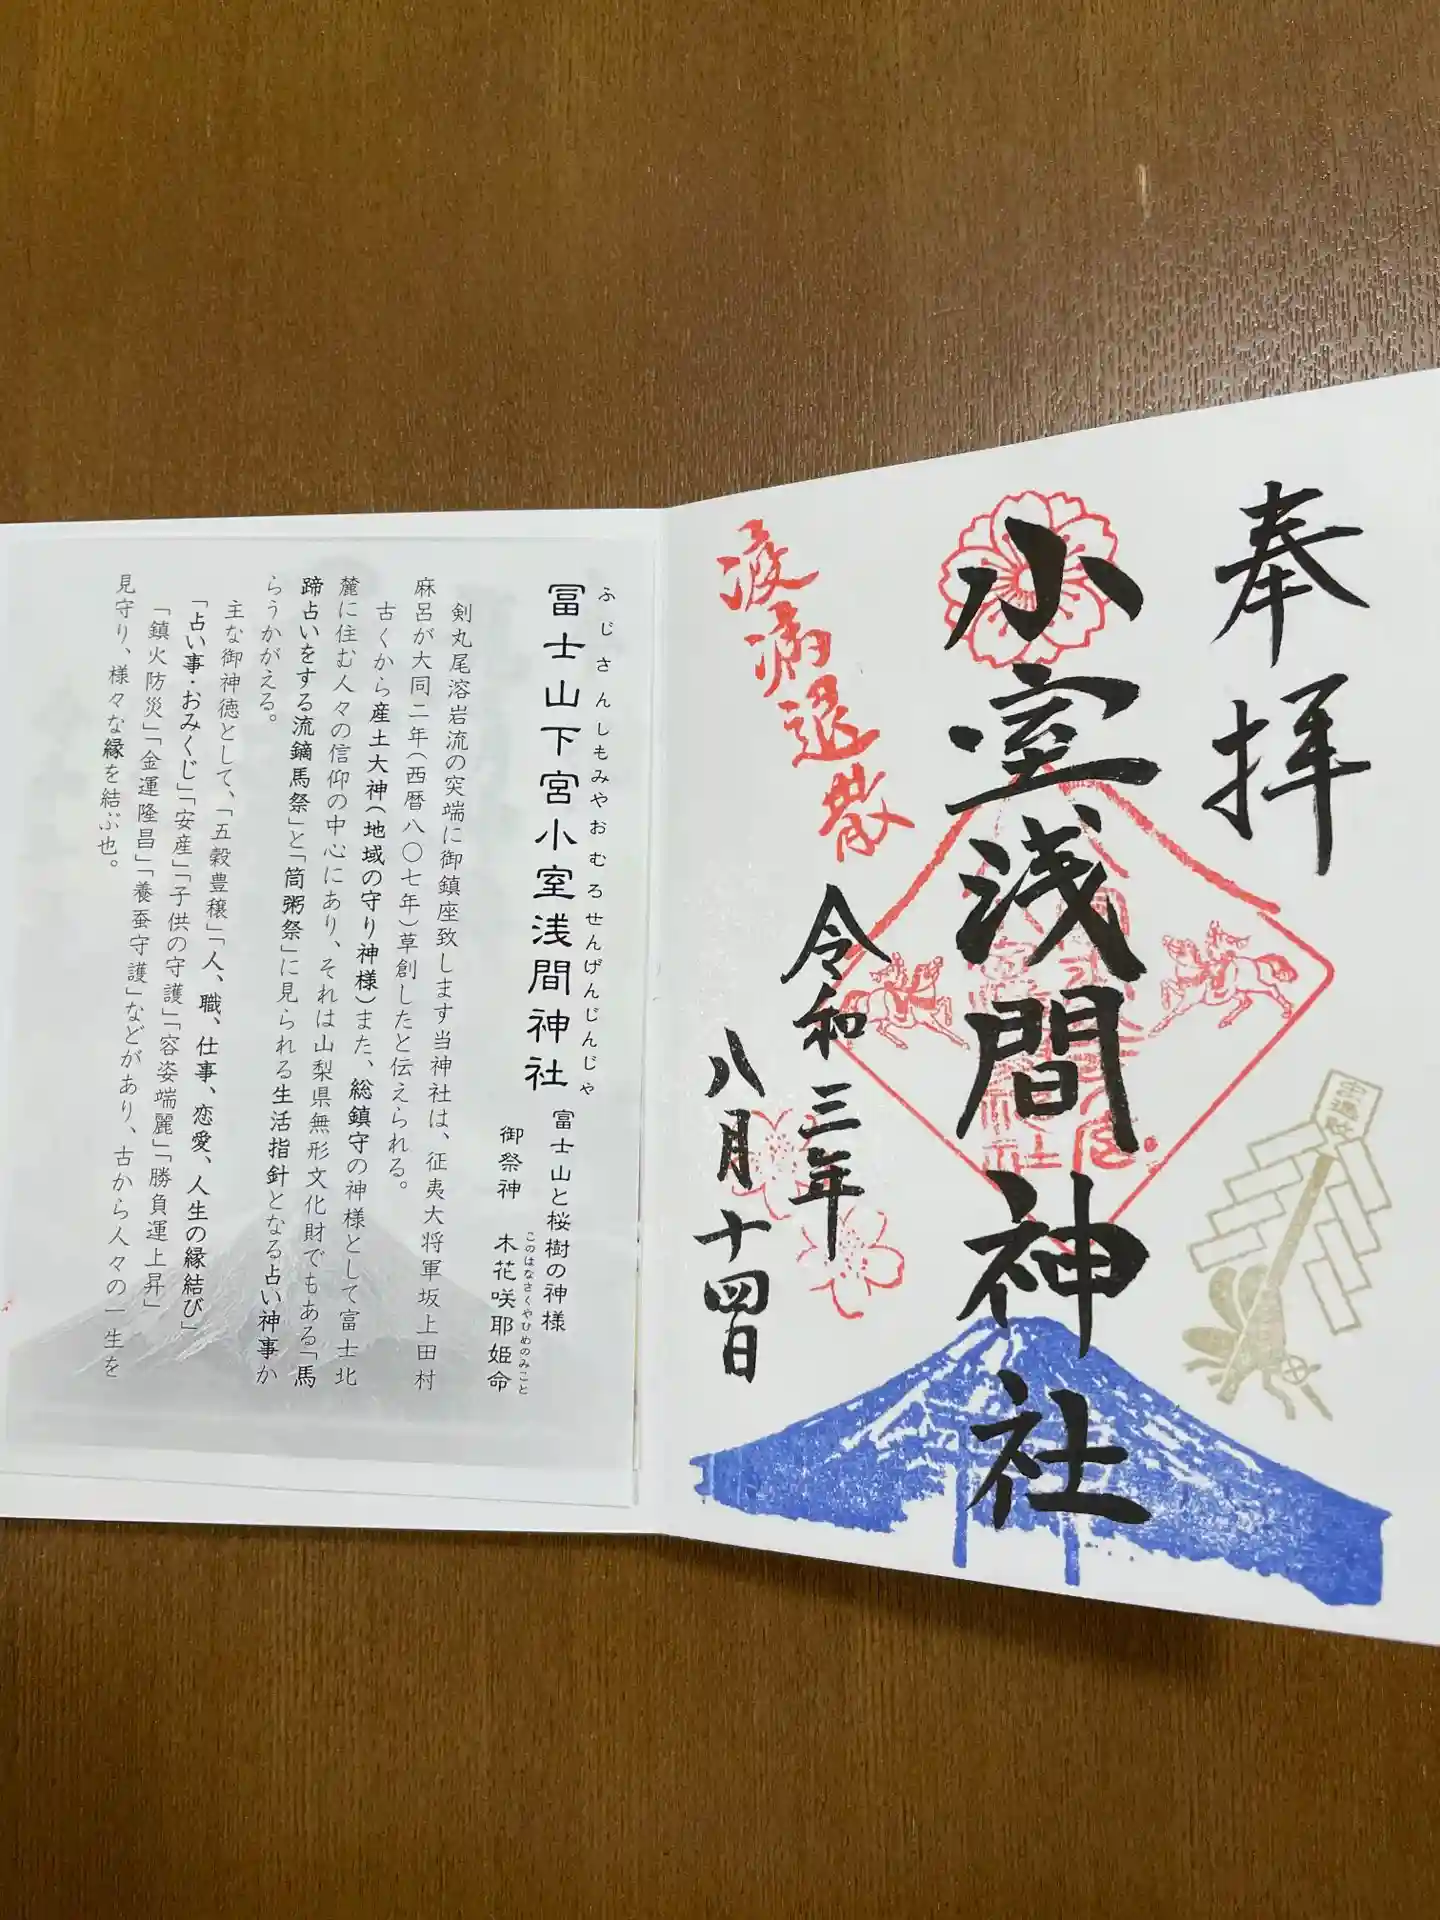 奉拝
小室浅間神社
疫病退散
令和三年
八月十四日
ふじさんしもみやおむろせんげんじんじゃ
冨士山下宮小室浅間神社
富士山と桜樹の神様
御祭神 木花咲耶姫命
このはなさくやひめのみこと
剣丸尾溶岩流の突端に御鎮座致します当神社は、征夷大将軍坂上田村
麻呂が大同二年(西暦八〇七年)草創したと伝えられる。
古くから産土大神(地域の守り神様)また、総鎮守の神様として富士北
麓に住む人々の信仰の中心にあり、それは山梨県無形文化財でもある「馬
蹄占いをする流鏑馬祭」と「筒粥祭」に見られる生活指針となる占い神事か
らうかがえる。
主な御神徳として、「五穀豊穣」「人、職、仕事、恋愛、人生の縁結び」
「占い事・おみくじ」「安産」「子供の守護」「容姿端麗」「勝負運上昇」
「鎮火防災」「金運隆昌」「養蚕守護」などがあり、古から人々の一生を
見守り、様々な縁を結ぶ也。